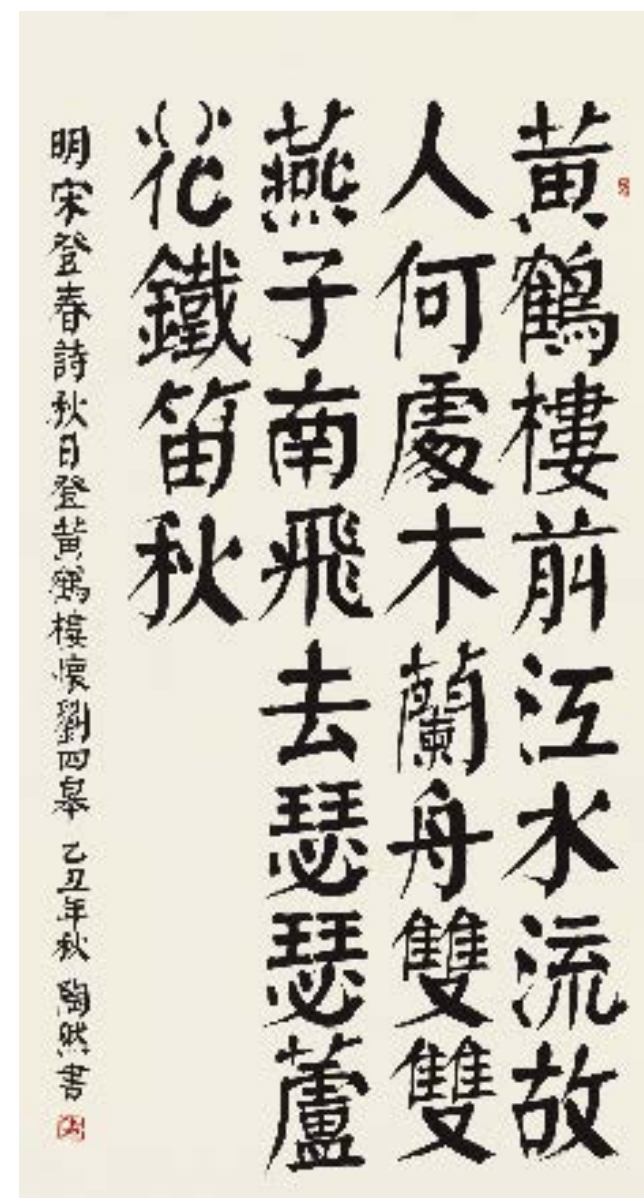 黃鶴樓前江水流故
人何處木蘭舟雙雙
燕子南飛去瑟瑟蘆
花鐵笛秋
明宋登春詩秋日登黃鶴樓懷劉四皋 乙丑年秋 陶然書